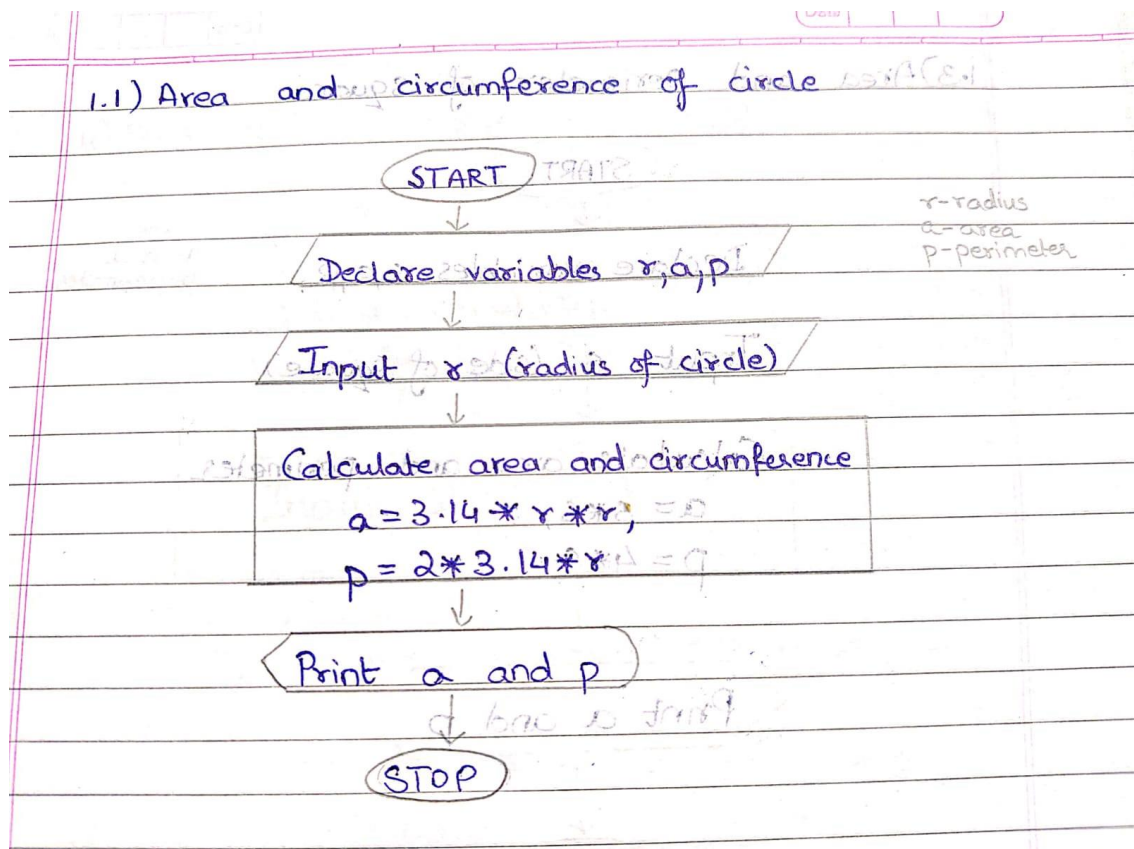 Date
1.1) Area and circumference of circle
START
r-radius
a-area
p-perimeter
Declare variables r,a,p
Input r (radius of circle)
Calculate area and circumference
a = 3.14 * r * r;
p = 2 * 3.14 * r
Print a and p
STOP